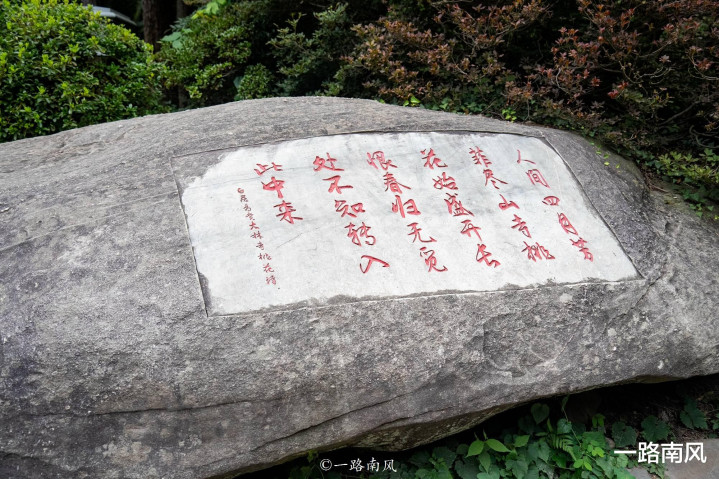 人间四月芳
菲尽山寺桃
花始盛开长
恨春归无觅
处不知转入
此中来
白居易大林寺桃花
©一路南风
一路南风